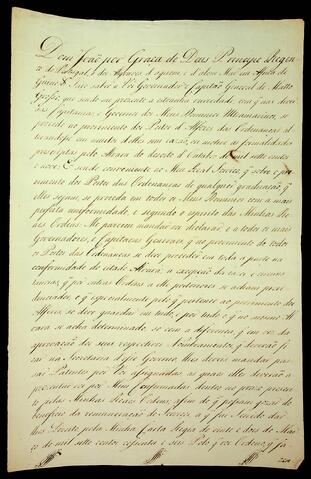 Dom João por Graça de Deos Principe Regen-
te de Portugal, e dos Algarves d'aquem, e d'alem Mar em Africa de
Guiné &. Faço saber a Vós Governador e Capitão General de Matto
Grosso que sendo me prezente a
Capitanias, e Governos dos Meus Dominios Ultramarinos, se
procede no provimento dos Postos d'Alferes das Ordenanças
em muitos delles sem as formalidades
prescriptas pelo Alvará de dezoito d'Outubro de mil sette centos
e nove: E sendo conveniente ao Meu Real Serviço, q sobre o pro-
vimento dos Postos das Ordenanças de qualquer graduação, q
elles sejam, se proceda em todos os Meus Dominios com a mais
perfeita uniformidade, e segundo o espirito das Minhas Re-
aes Ordens: Me pareceo mandar vos declarar, e a todos os mais
Governadores, e Capitaens Generaes, q no provimento de todos
os Postos das Ordenanças se deve proceder em tudo e por tudo na
conformidade do citado Alvará: a excepção dos cazos, e circuns-
tancias, q por outras Ordens a elle posteriores se achão provi-
denciados, e q especialmente pelo q pertence ao provimento dos
Alferes se deve guardar em tudo, e por tudo o q no mesmo Al-
vará se acha determinado, se com a differença, q em vez da
aprovação dos seus respectivos Nombramentos, q deverão fi-
car na Secretaria desse Governo, lhes deveis mandar pas-
sar Patentes por Vós assignadas as quaes elles deverão a-
prezentar por Mim Confirmadas dentro no prazo prescri-
to pelas Minhas Reaes Ordens, afim de q possão gozar do
beneficio da remuneração de Serviços, a q foi Servido dar
lhes Direito pela Minha Carta Regia de vinte e dois de Mar-
ço de mil sette centos sessenta e seis. Pelo q vos Ordeno, q fa-